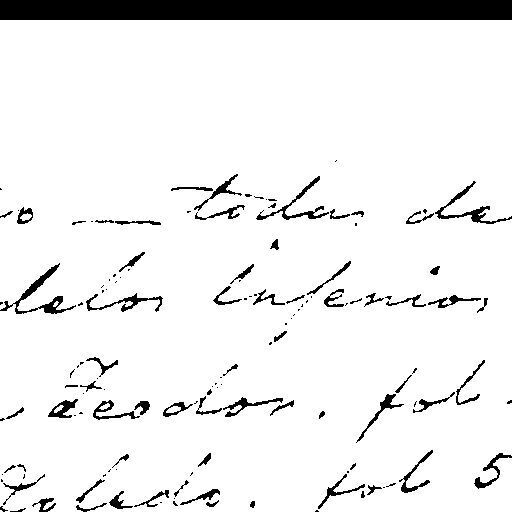 o — todas de
delos Infenios
Teodor. fol
Toledo. fol 5